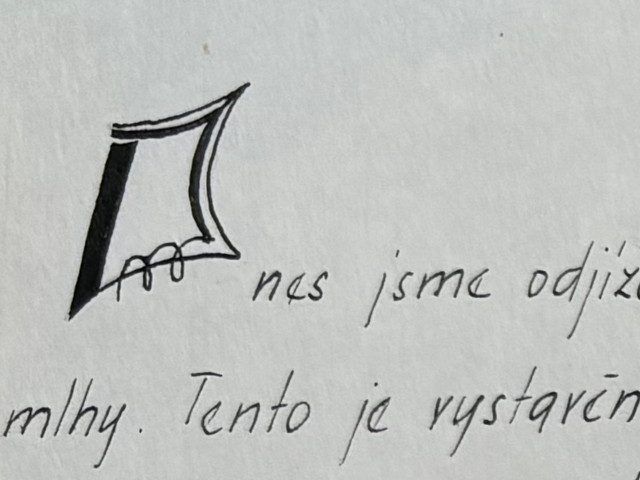 Dnes jsme odjíž
mlhy. Tento je vystarčn